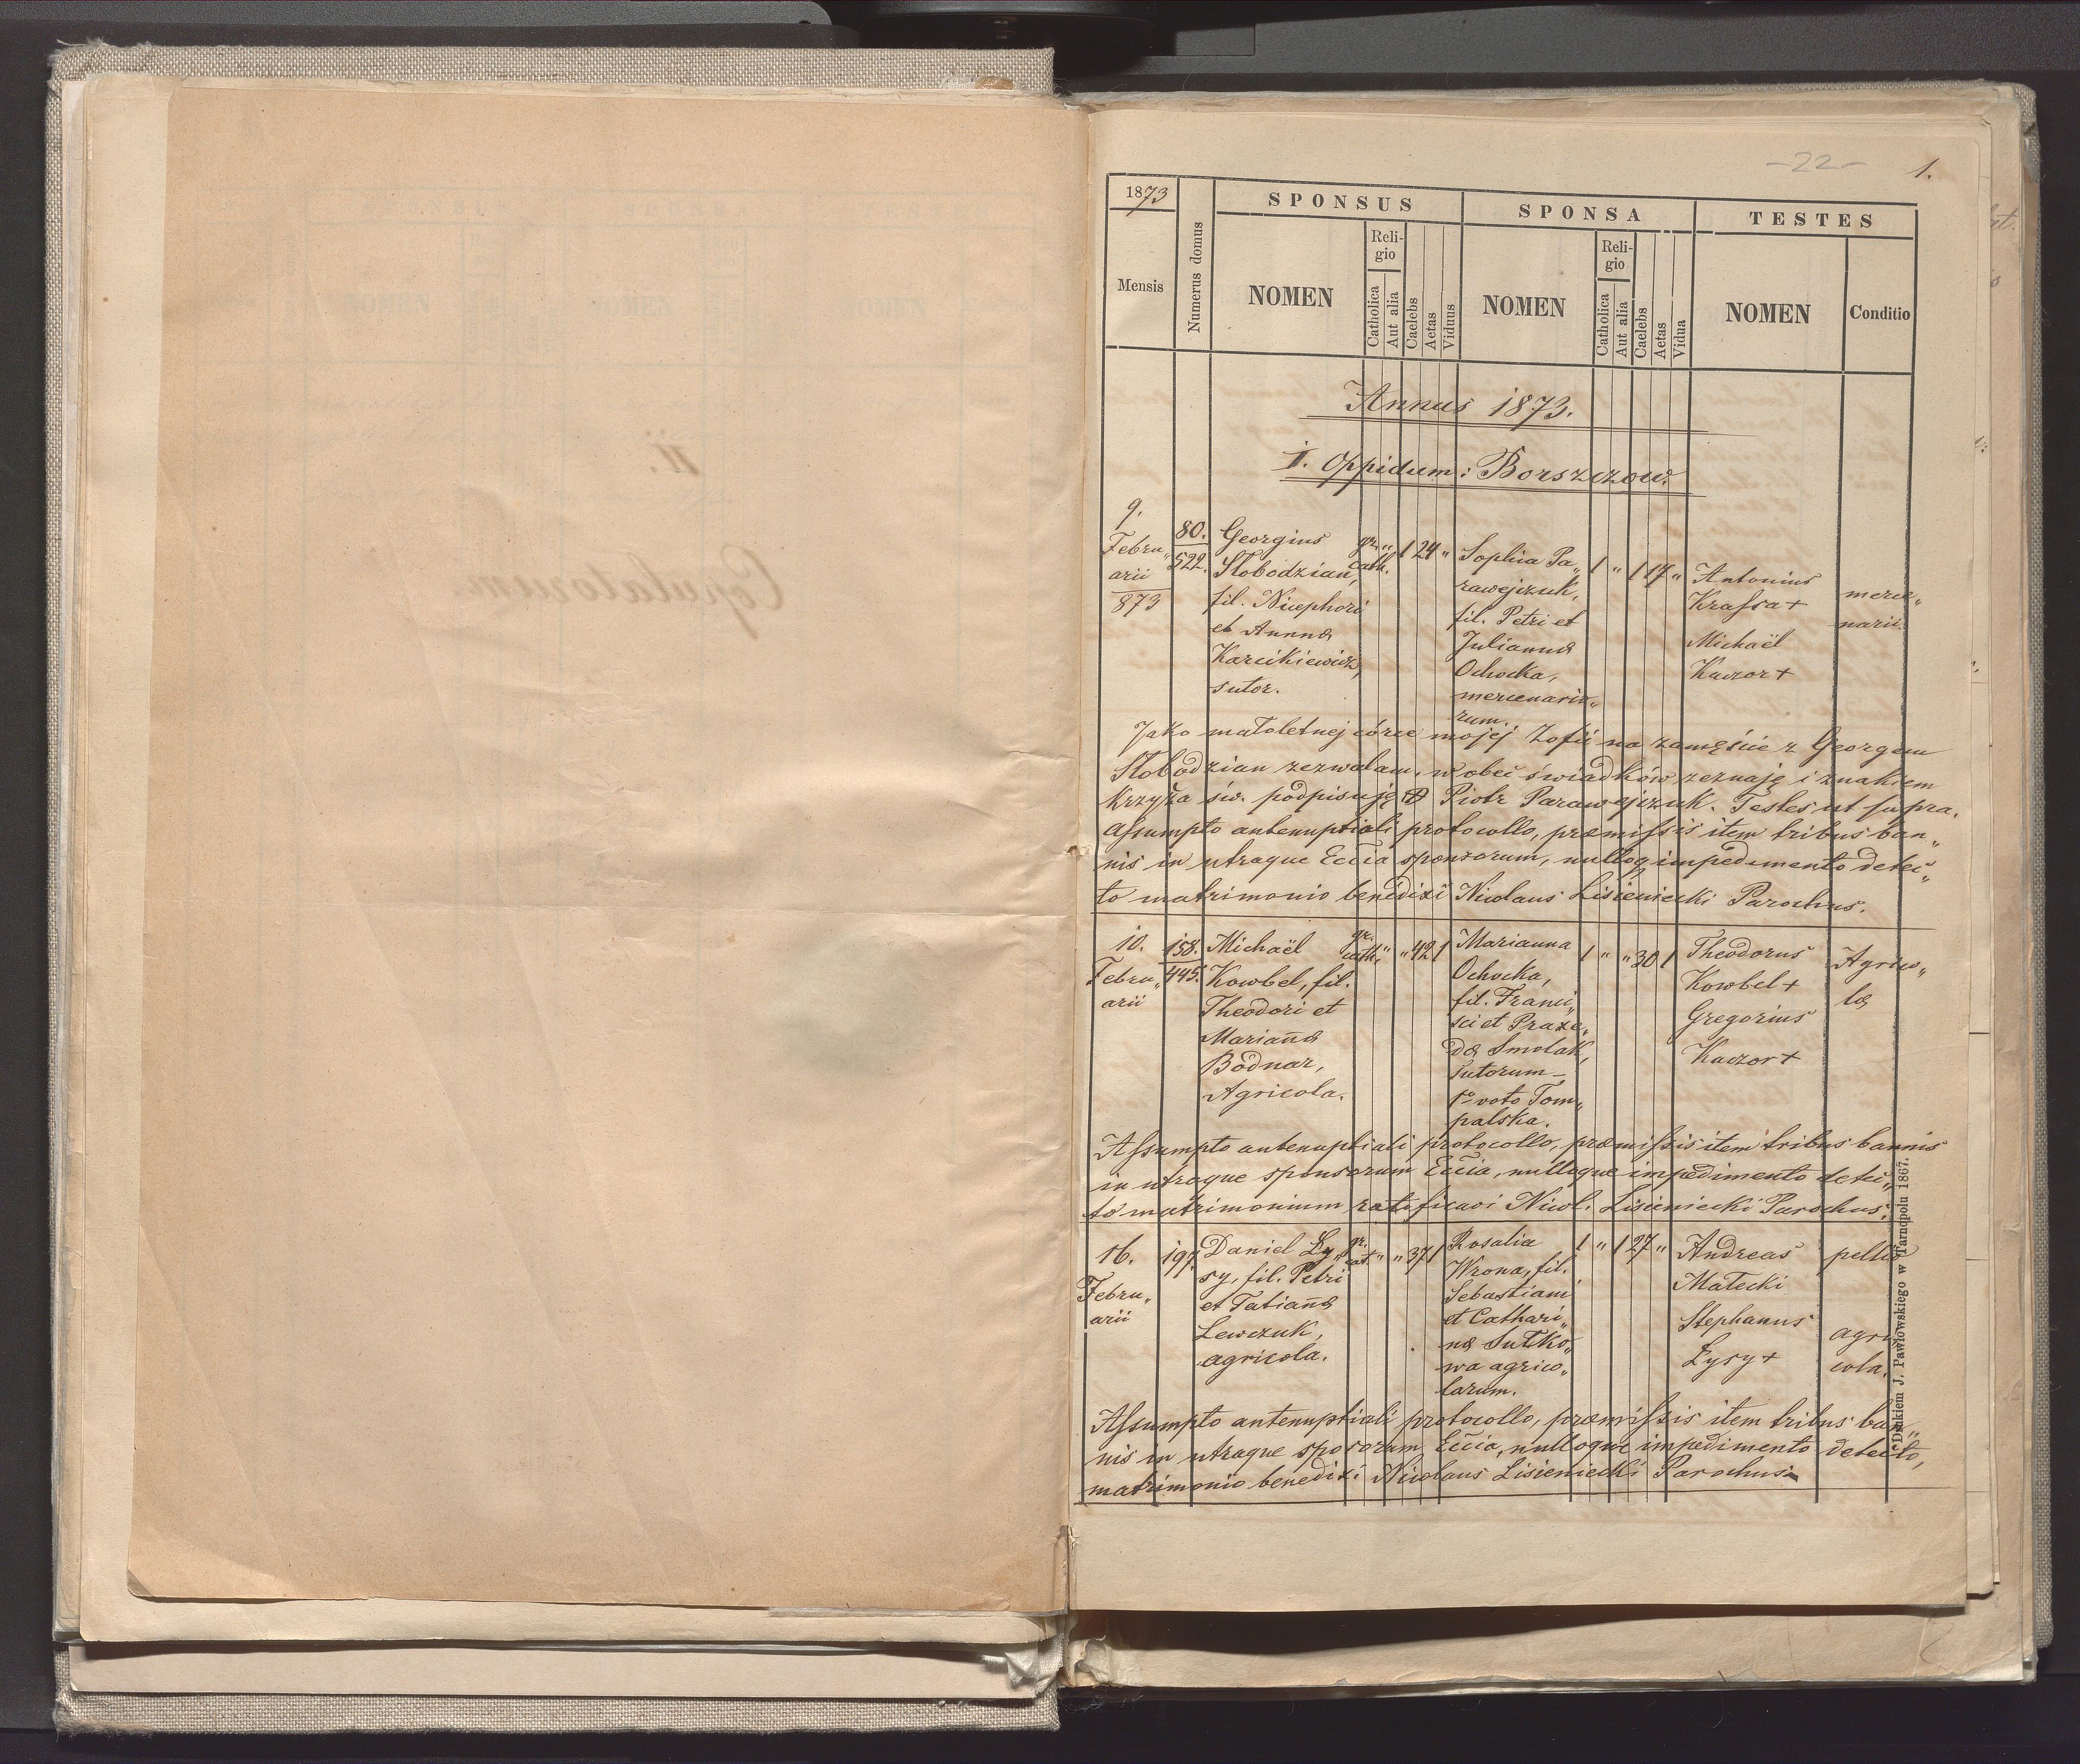 -22-
1.
1873
Numerus domus
SPONSUS
SPONSA
TESTES
Mensis
NOMEN
Religio
Catholica
Aut alia
Caelebs
Aetas
Viduus
NOMEN
Religio
Catholica
Aut alia
Caelebs
Aetas
Vidua
NOMEN
Conditio
Annus 1873.
I. Oppidum: Borszczow.
9.
Febru„
arii
873
80.
522.
Georgius
Słobodzian,
fil. Nicephori
et Annæ
Karcikiewicz,
sutor.
gr. „
cath.
1 24 „
Sophia Pa„
rawejczuk,
fil. Petri et
Julianæ
Ochocka,
mercenario„
rum.
1 „ 1 17 „
Antonius
Krassa +
Michaël
Kaczor +
merce„
narii.
Jako małoletnej córce mojej Zofii na zamęście z Georgem
Słobodzian zezwalam, w obec świadków zeznaję i znakiem
Krzyża św. podpisuję + Piotr Parawejczuk. Testes ut supra.
Assumpto antenuptiali protocollo, præmissis item tribus ban„
nis in utraque Eccia sponsorum, nulloq impedimento detec„
to matrimonio benedixi Nicolaus Lisieniecki Parochus.
10.
Febru„
arii
158.
445.
Michaël
Kowbel, fil.
Theodori et
Mariañæ
Bodnar,
Agricola.
gr.
cath. „
„ 42 1
Marianna
Ochocka,
fil. Franci„
sci et Praxe„
dæ Smolak,
sutorum –
1º voto Tom„
palska.
1 „ „ 30 1
Theodorus
Kowbel +
Gregorius
Kaczor +
Agrico„
læ
Assumpto antenuptiali protocollo, præmissis item tribus bannis
in utraque sponsorum Eccia, nulloque impedimento detec„
to matrimonium ratificavi Nicol. Lisieniecki Parochus.
16.
Febru„
arii
197.
Daniel Ły„
sy, fil. Petri
et Tatiañæ
Lewczuk,
agricola.
gr.
cat. „
„ 37 1
Rosalia
Wrona, fil.
Sebastiani
et Cathari„
næ Sutko„
wa agrico„
larum.
1 „ 1 27 „
Andreas
Małecki
Stephanus
Łysy +
pellio
agri
cola.
Assumpto antenuptiali protocollo, præmissis item tribus ban„
nis in utraque sposorum Eccia, nulloque impedimento detecto,
matrimonio benedixi Nicolaus Lisieniecki Parochus
Drukiem J. Pawłowskiego w Tarnopolu 1867.
II.
Copulatorum